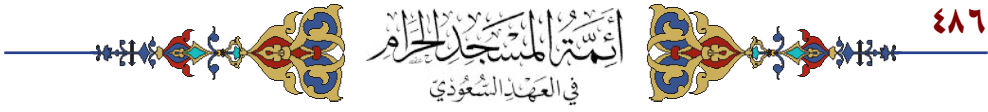 ٤٨٦
أئمة المسجد الحرام
في العهد السعودي